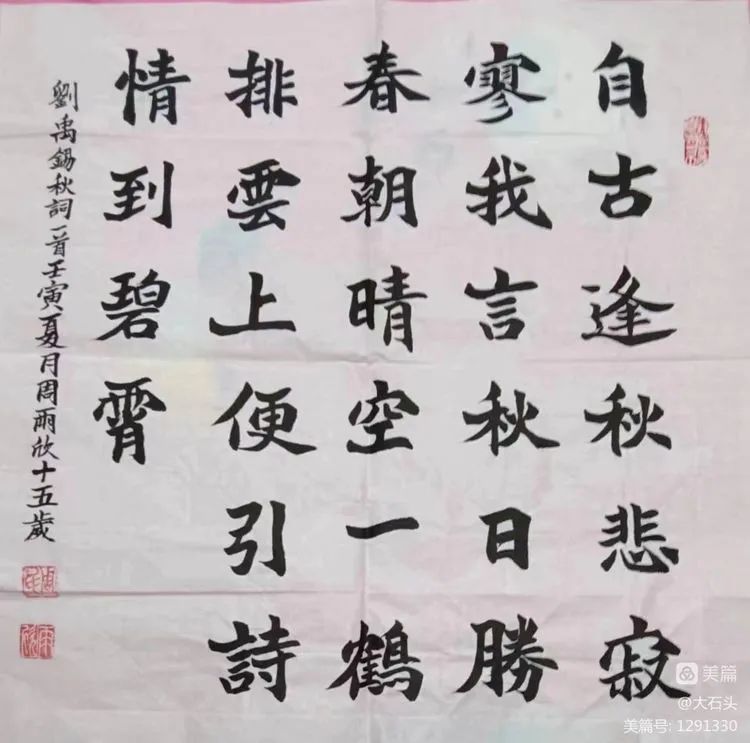 自古逢秋悲寂
寥我言秋日勝
春朝晴空一鶴
排雲上便引詩
情到碧霄
劉禹錫秋詞一首壬寅夏月周雨欣十五歲
美篇
@大石头
美篇号: 1291330